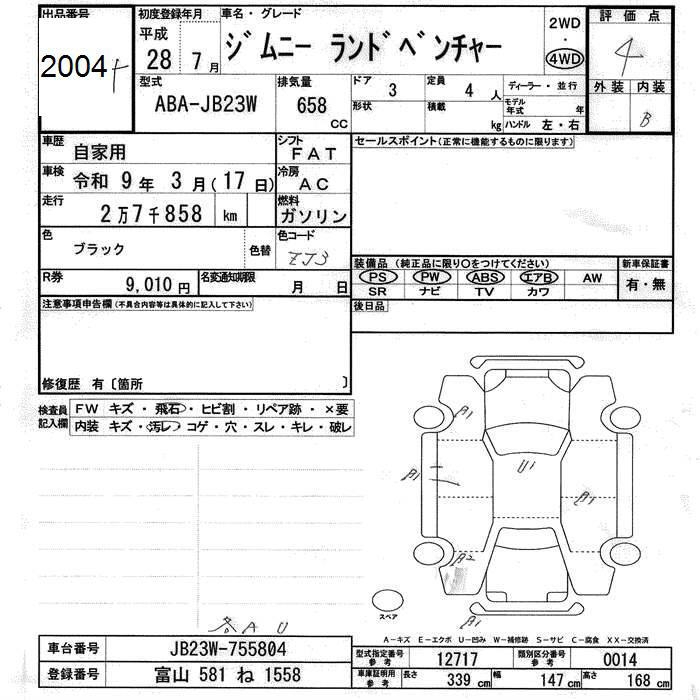 出品番号
2004
初度登録年月
平成 28 7月
車名・グレード
ジムニー ランドベンチャー
2WD
・
4WD
評価点
4
外装 内装
B
型式
ABA-JB23W
排気量
658
CC
ドア 3
形状
定員 4 人
積載 kg
ディーラー・並行
モデル年式 年
ハンドル 左・右
車歴 自家用
シフト FAT
セールスポイント(正常に機能するものに限ります)
車検 令和 9年 3月(17日)
冷房 AC
走行 2万7千858 km
燃料 ガソリン
色 ブラック
色替
色コード
ZJ3
装備品 (純正品に限り○をつけてください)
新車保証書
PS PW ABS エアB AW
有・無
SR ナビ TV カワ
R券 9,010円
名変通知期限 月 日
後日品
注意事項申告欄(不具合内容等は具体的に記入して下さい)
修復歴 有〔箇所 〕
検査員
記入欄
FW キズ・飛石・ヒビ割・リペア跡・×要
内装 キズ・汚レ・コゲ・穴・スレ・キレ・破レ
A1
U1
A1
A1
A2
スペア
A1
各AU
A-キズ E-エクボ U-凹み W-補修跡 S-サビ C-腐食 XX-交換済
車台番号 JB23W-755804
型式指定番号 参考 12717
類別区分番号 参考 0014
登録番号 富山 581 ね 1558
車庫証明用 参考 長さ 339 cm 幅 147 cm 高さ 168 cm